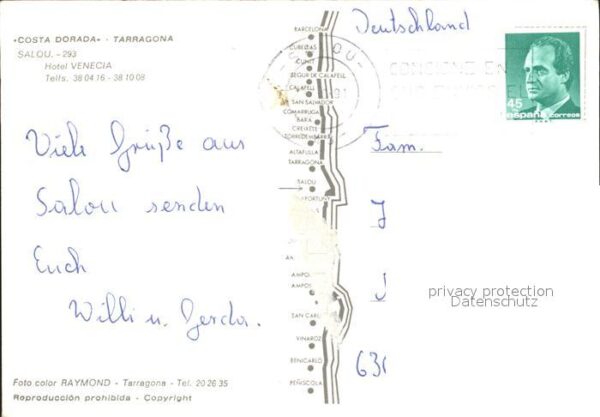 «COSTA DORADA» - TARRAGONA
SALOU. - 293
Hotel VENECIA
Telfs. 38 04 16 - 38 10 08
Viele Grüße aus
Salou senden
Euch
Willi u. Gerda.
Foto color RAYMOND - Tarragona - Tel. 20 26 35
Reproducción prohibida - Copyright
BARCELONA
CUBELLAS
CUNIT
SEGUR DE CALAFELL
CALAFELL
SAN SALVADOR
COMARRUGA
BARA
CREIXELL
TORREDEMBARRA
ALTAFULLA
TARRAGONA
SALOU
AMPOS
SAN CARL
VINAROZ
BENICARLO
PEÑISCOLA
Deutschland
SALOU
45
españa correos
Fam.
J
J
privacy protection
Datenschutz
631